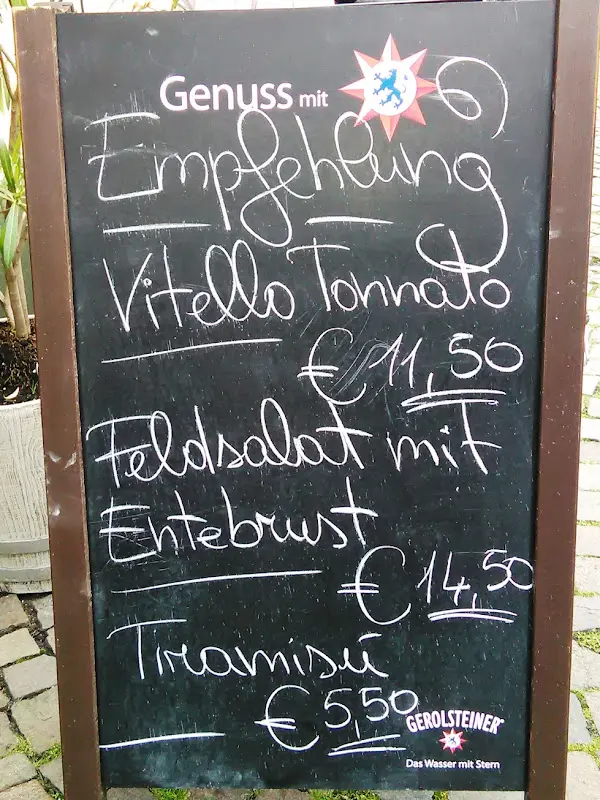 Genuss mit
Empfehlung
Vitello Tonnato
€ 11,50
Feldsalat mit
Entebrust
€ 14,50
Tiramisú
€ 5,50
GEROLSTEINER
Das Wasser mit Stern